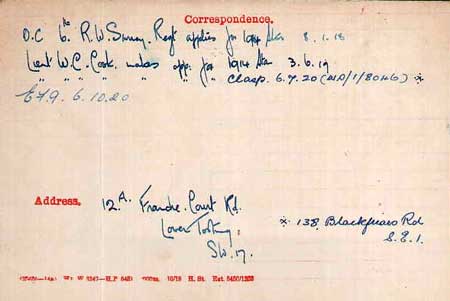 Correspondence.
O.C 6th R.W. Surrey Regt applies for 1914 Star 8.1.18
Lieut W.C. Cook. makes app. for 1914 Star 3.6.19
" " " " " " Clasp. 6.7.20 (NA/1/80446) *
E.F.9. 6.10.20
Address.
12A. Franche Court Rd.
Lower Tooting,
SW.17.
* 138, Blackfriars Rd
S.E.1.
10/18 H. St